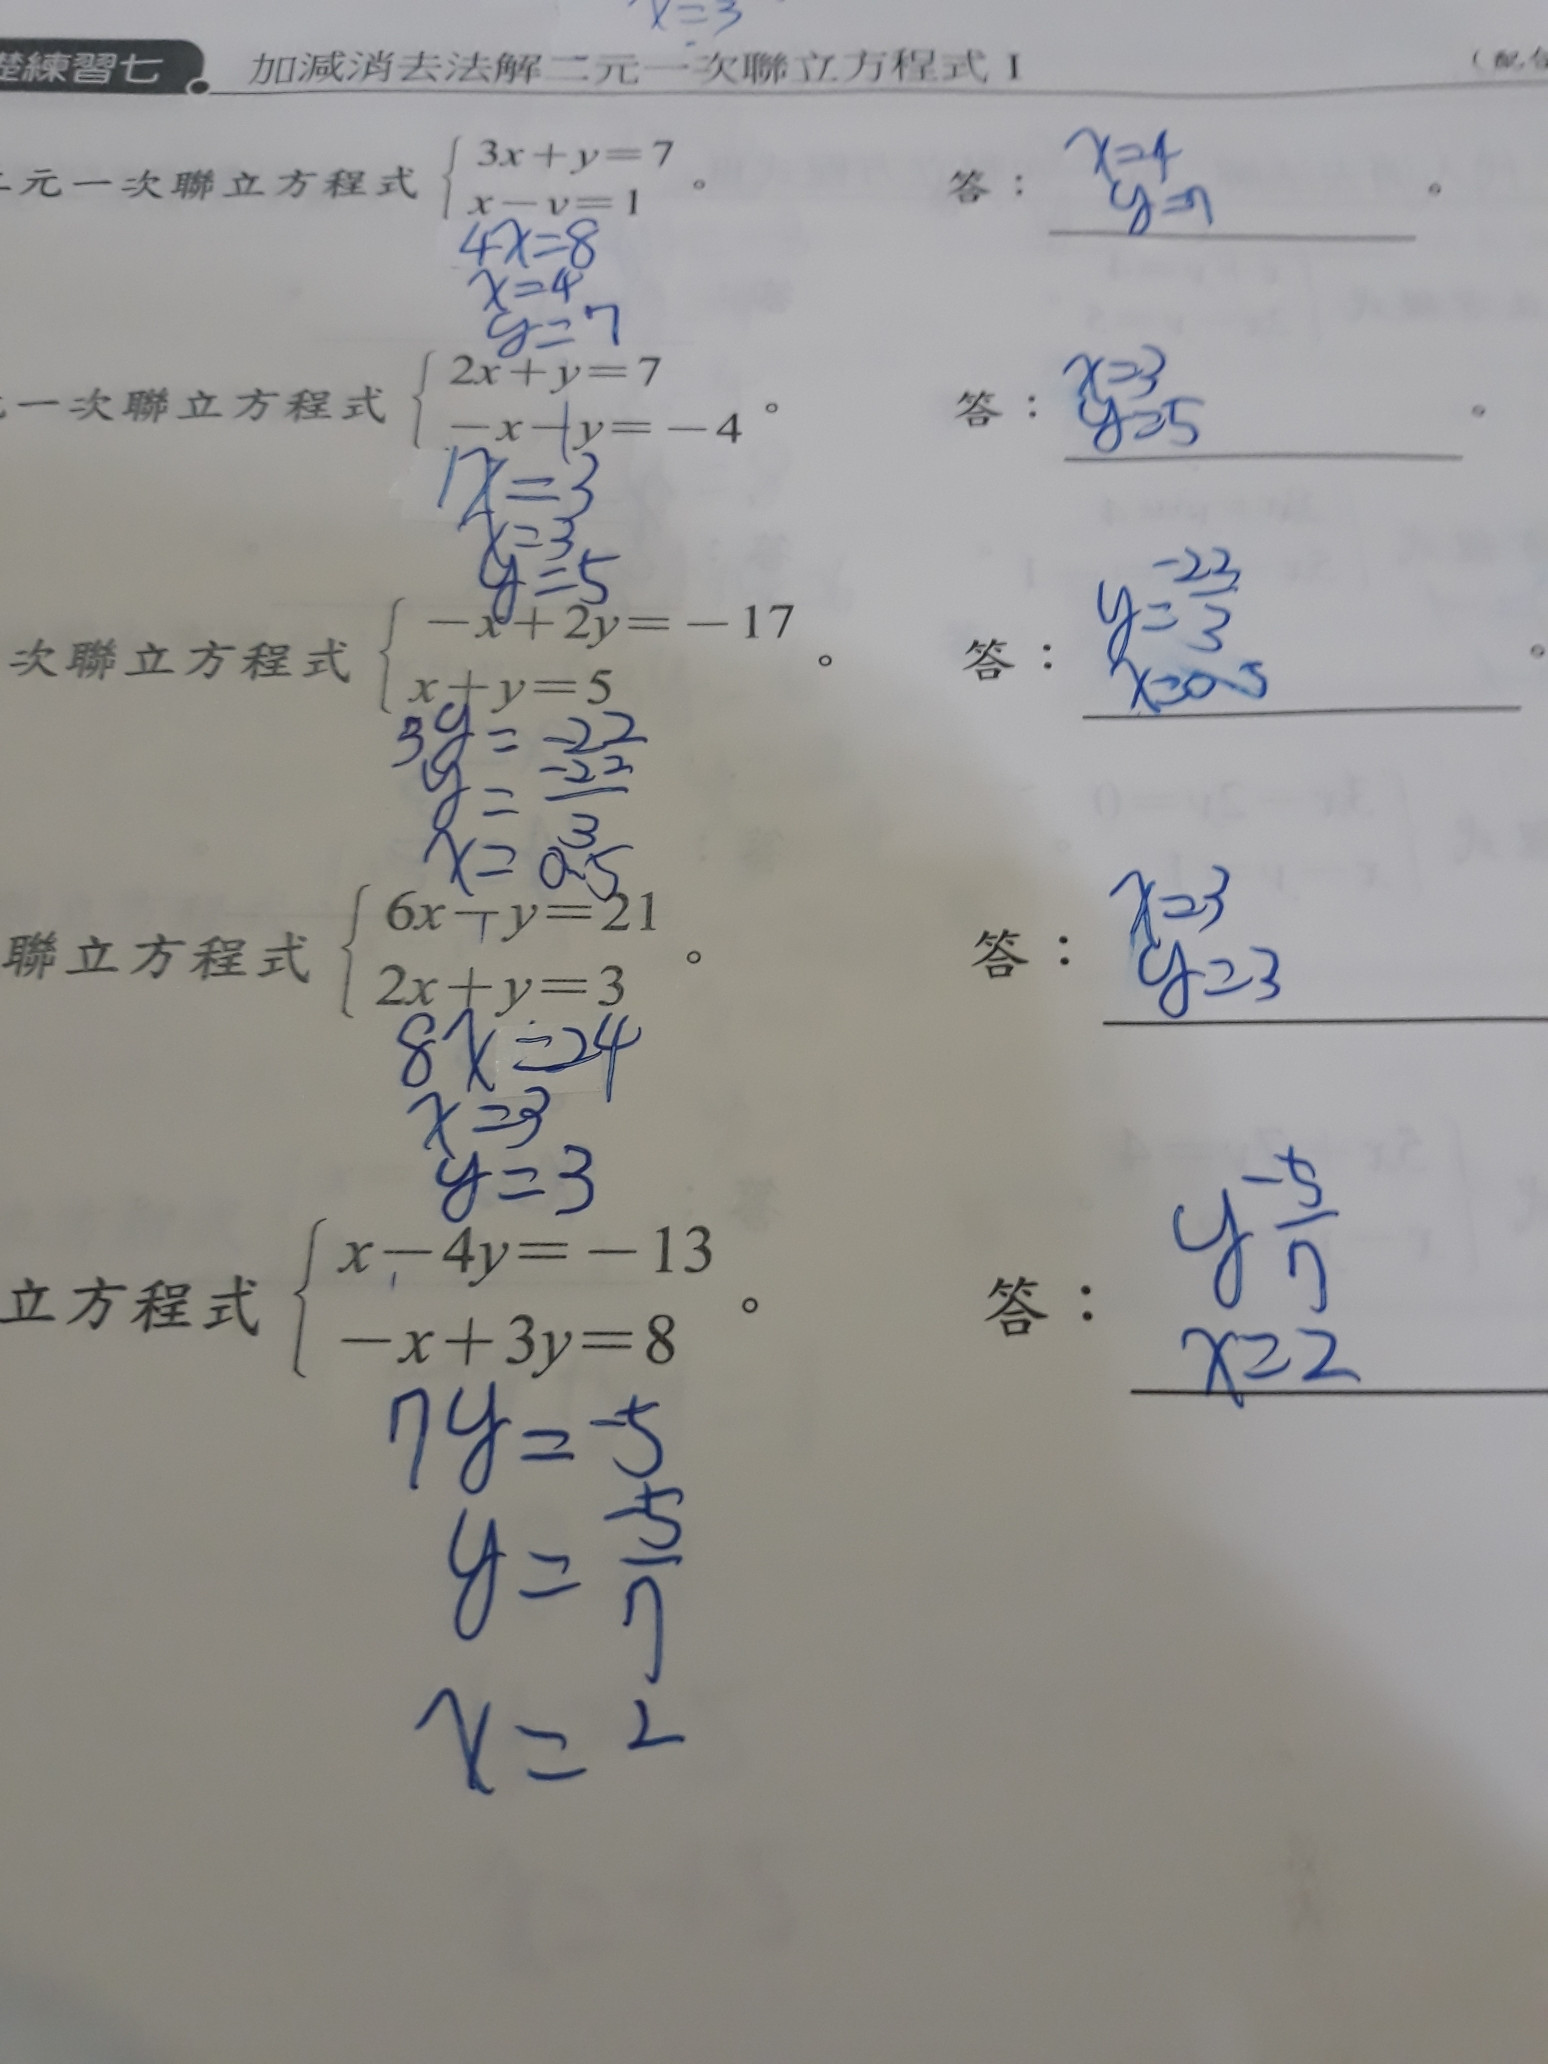 x=3
礎練習七 加減消去法解二元一次聯立方程式 I (配合
二元一次聯立方程式 { 3x+y=7
x-y=1 。 答： x=4
y=7 。
4x=8
x=4
y=7
元一次聯立方程式 { 2x+y=7
-x-y=-4 。 答： x=3
y=5 。
1x=3
x=3
y=5
次聯立方程式 { -x+2y=-17
x+y=5 。 答： y=-22/3
x=0.5 。
3y=-22
y=-22/3
x=0.5
聯立方程式 { 6x-y=21
2x+y=3 。 答： x=3
y=3
8x=24
x=3
y=3
立方程式 { x-4y=-13
-x+3y=8 。 答： y -5/7
x=2
7y=-5
y=-5/7
x=2